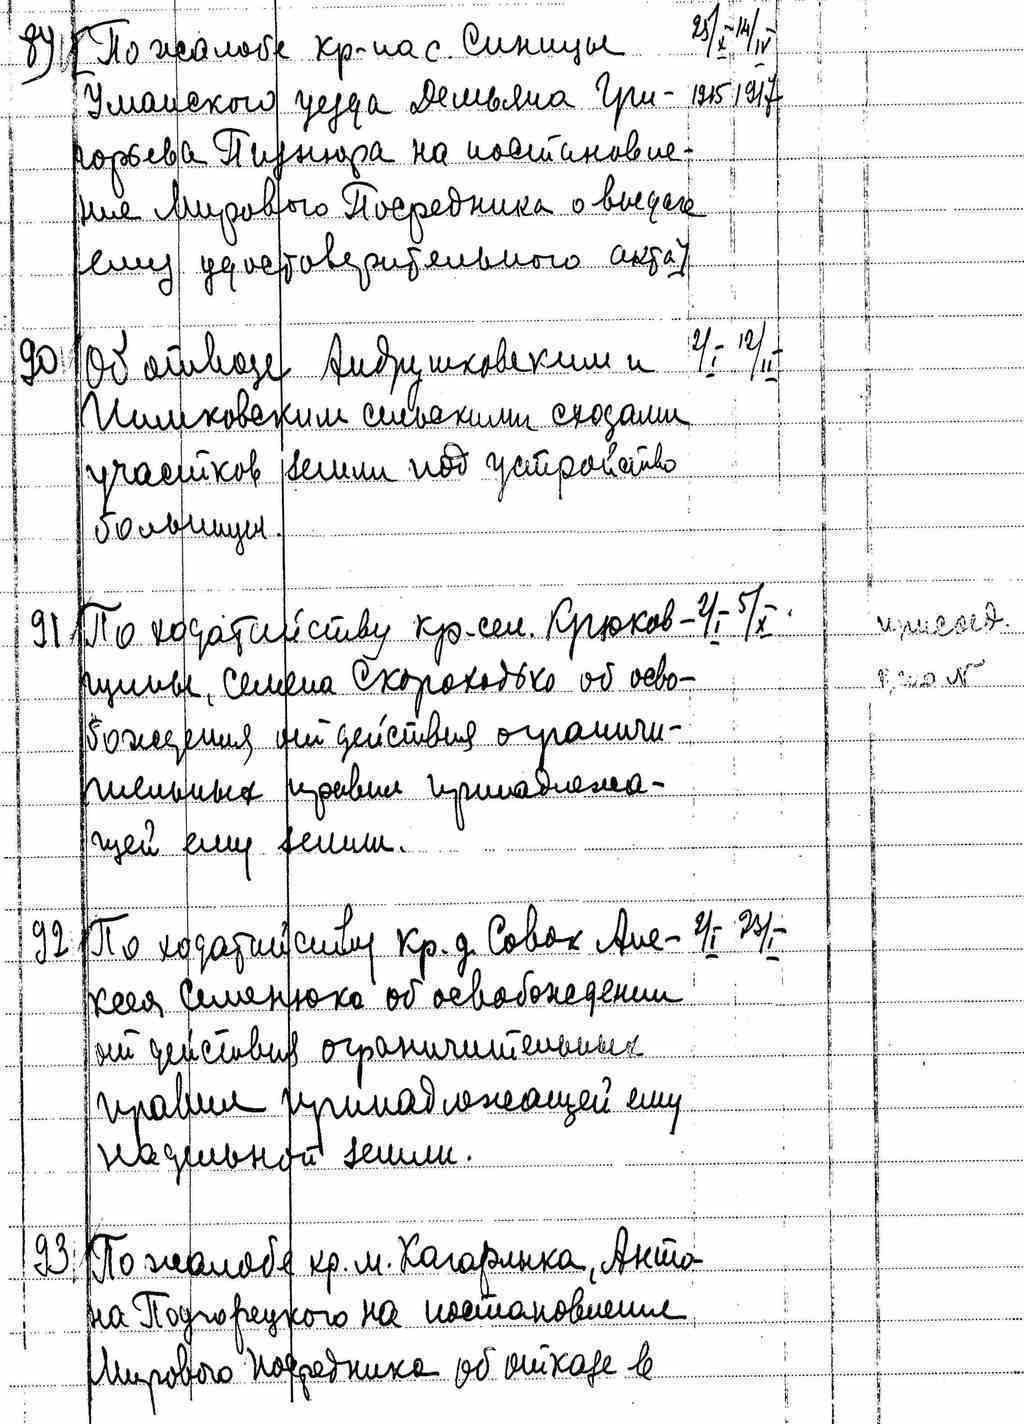 89 По жалобе кр-на с. Синицы 25/X 14/IV
Уманского уезда Демьяна Гри- 1915 1917
горьева Пизнюра на постановле-
ние Мирового Посредника о выдаче
ему удостоверительного акта
90 Об отводе Андрушковским и 2/I 12/II
сельскими сходами
участков земли под устройство
больницы.
91 По ходатайству кр. сел. Крюков- 2/I 5/X
щины, Семена Скороходько об осво-
бождения от действия ограничи-
тельных правил принадлежа-
щей ему земли.
92 По ходатайству кр. д. Совок Але- 2/I 23/I
ксея Семенюка об освобождении
от действия ограничительных
правил принадлежащей ему
надельной земли.
93 По жалобе кр. м. Кагарлыка, Анто-
на Подгорецкого на постановления
Мирового Посредника об отказе в